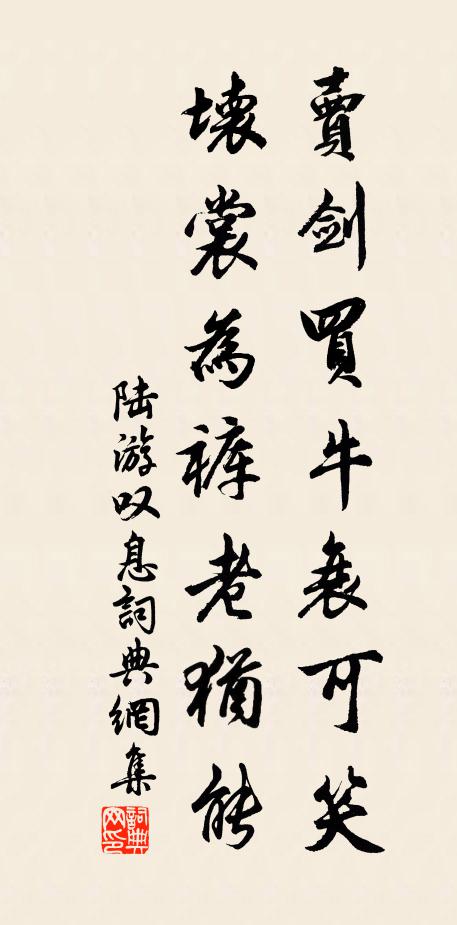 賣劍買牛衰可笑
壞裳為裤老猶能
陆游叹息詞典網集
詞典网印